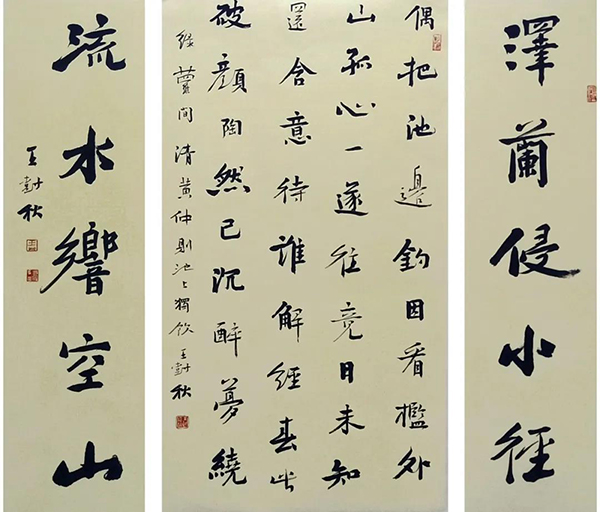 澤蘭侵小徑
偶把池邊釣因看檻外
山孤心一遂往竟日未知
還含意待誰解經春此
破顏陶然已沉醉夢繞
綠蘿間清黃仲則池上獨飲王對秋
流水響空山
王對秋